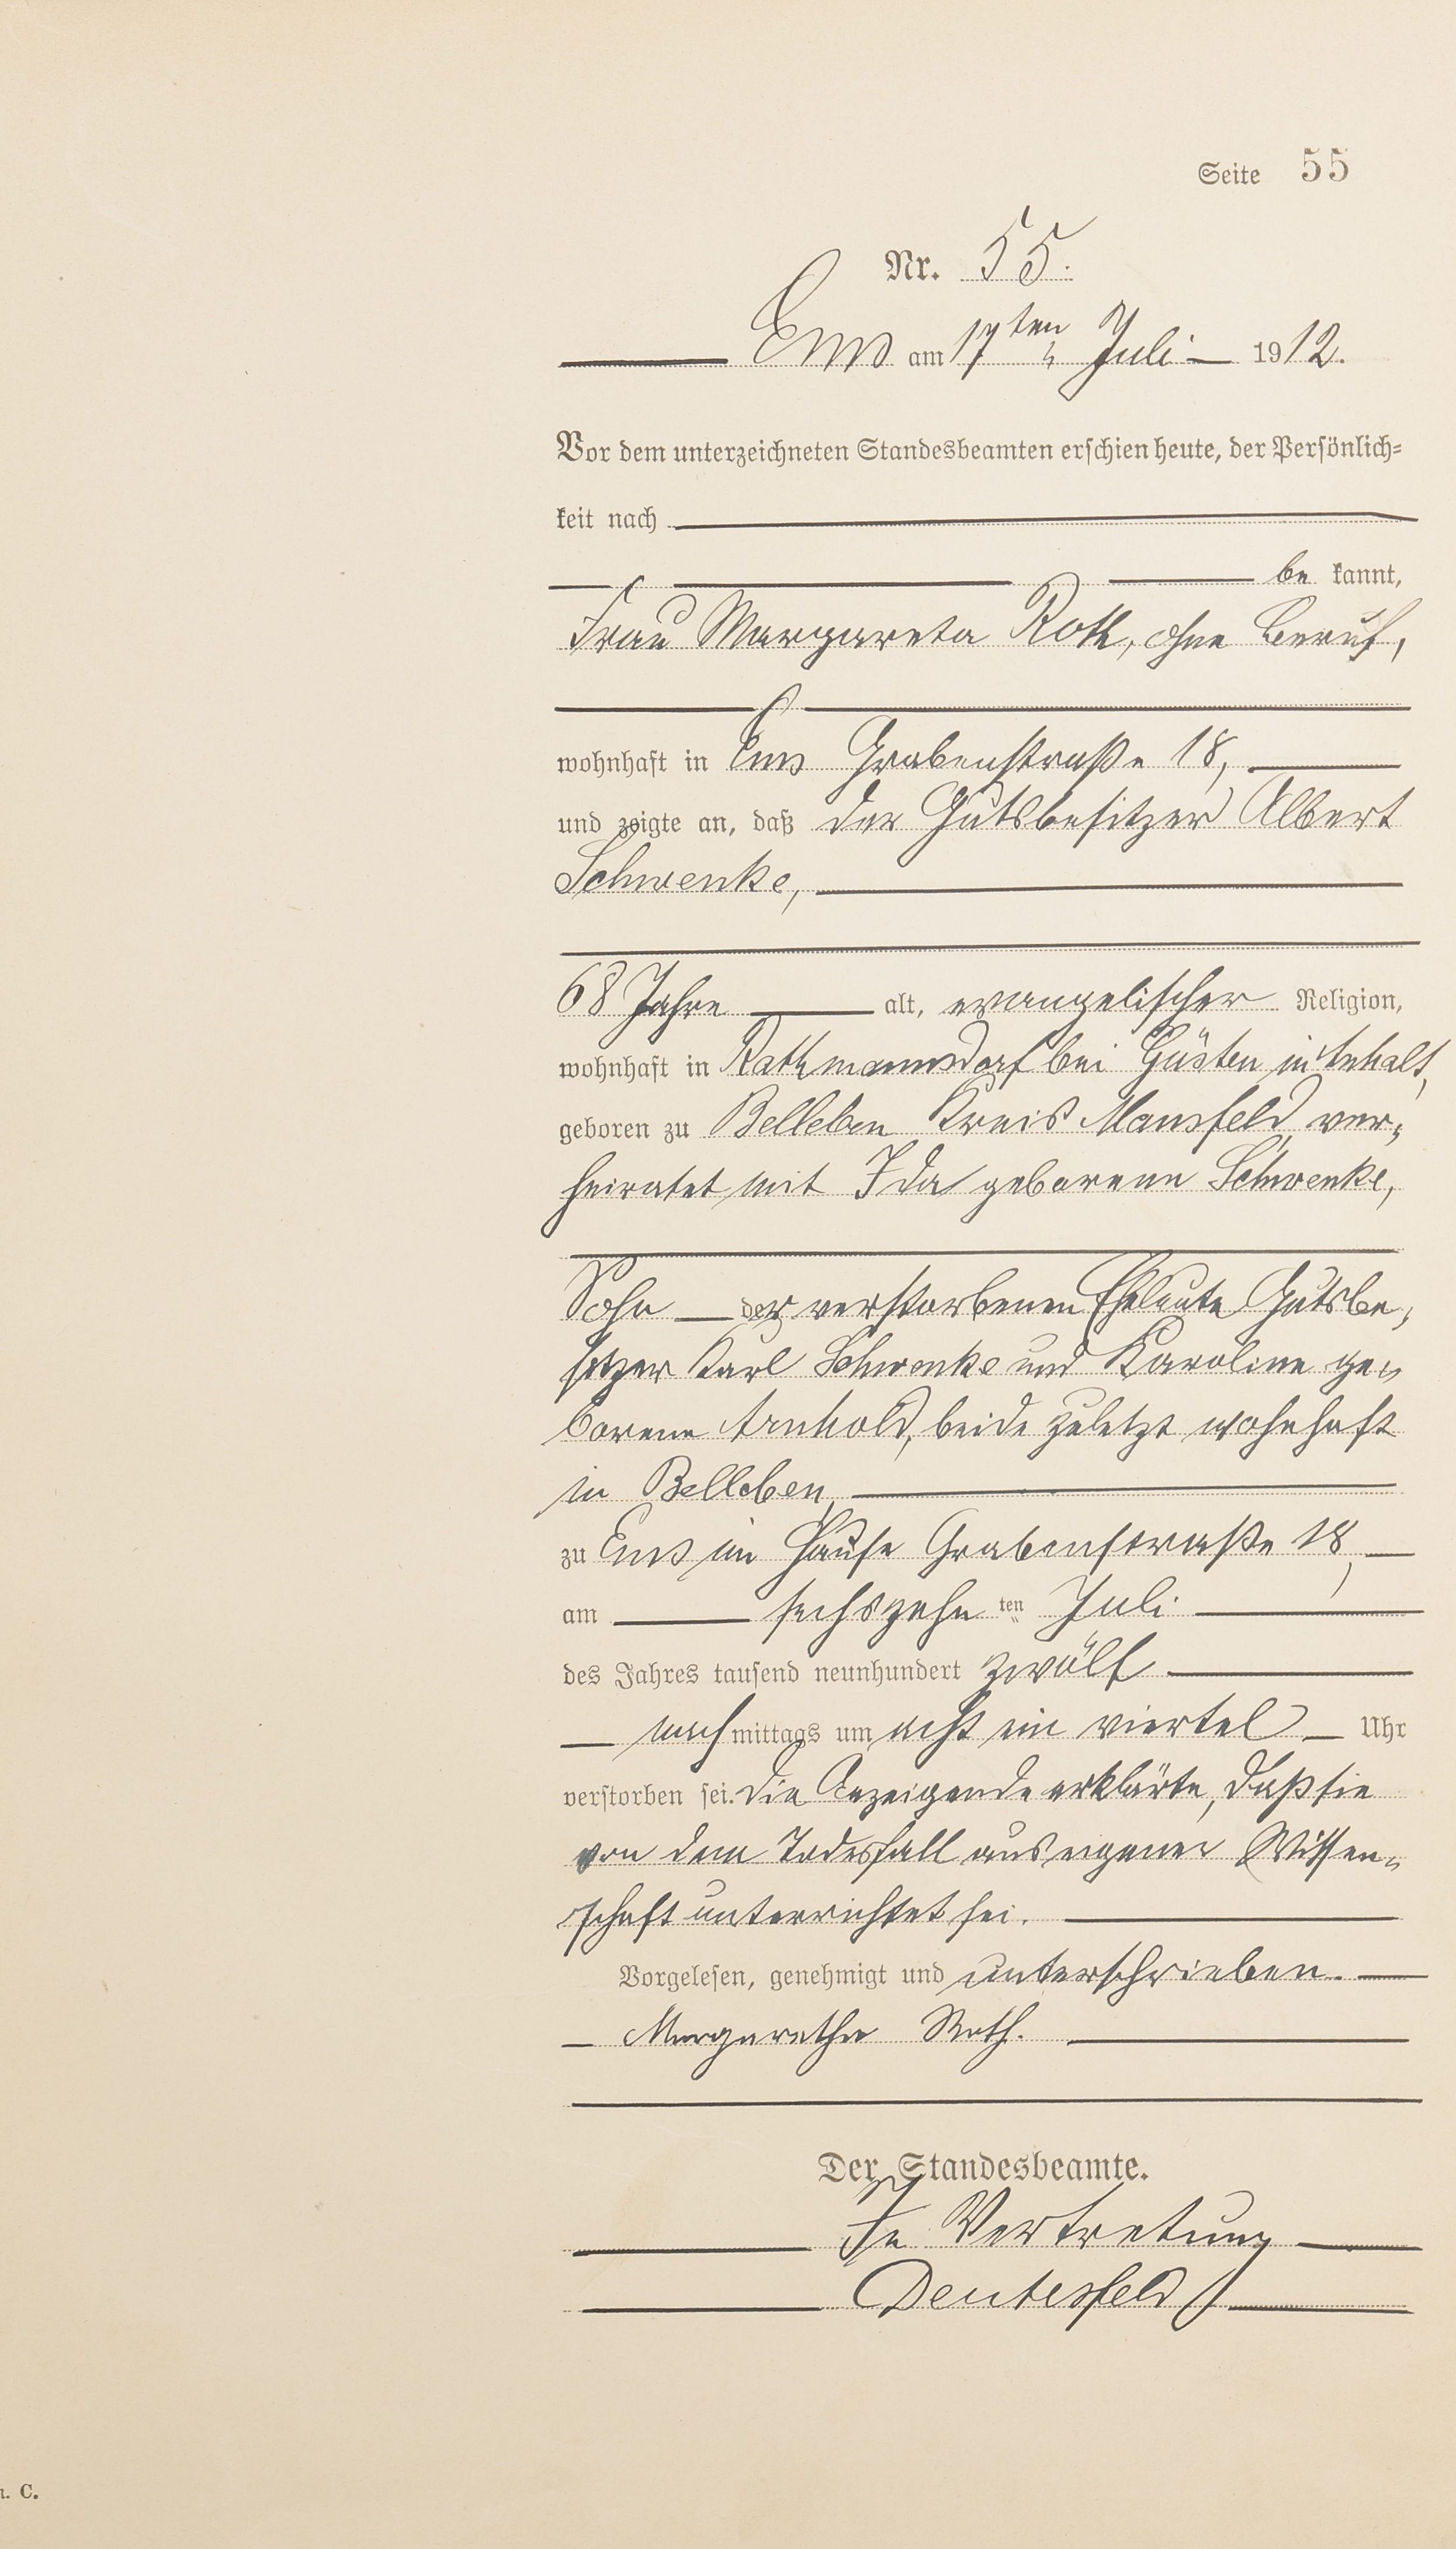 Seite 55
Nr. 55.
Ems am 17ten Juli 1912.
Vor dem unterzeichneten Standesbeamten erschien heute, der Persönlich=
keit nach
be kannt,
Frau Margareta Roth, ohne Beruf,
wohnhaft in Ems Grabenstraße 18,
und zeigte an, daß der Gutsbesitzer Albert
Schwenke,
68 Jahre alt, evangelischer Religion,
wohnhaft in Rathmannsdorf bei Güsten in Anhalt,
geboren zu Belleben Kreis Mansfeld, ver=
heiratet mit Ida geborenen Schwenke,
Sohn der verstorbenen Eheleute Gutsbe=
sitzer Karl Schwenke und Karoline ge=
borene Arnhold, beide zuletzt wohnhaft
in Belleben,
zu Ems im Hause Grabenstraße 18,
am sechszehn ten Juli
des Jahres tausend neunhundert zwölf
nachmittags um acht ein viertel Uhr
verstorben sei. Die Anzeigende erklärte, daß sie
von dem Todesfall aus eigener Wissen=
schaft unterrichtet sei.
Vorgelesen, genehmigt und unterschrieben.
Margaretha Roth.
Der Standesbeamte.
In Vertretung
Deutesfeld
. C.